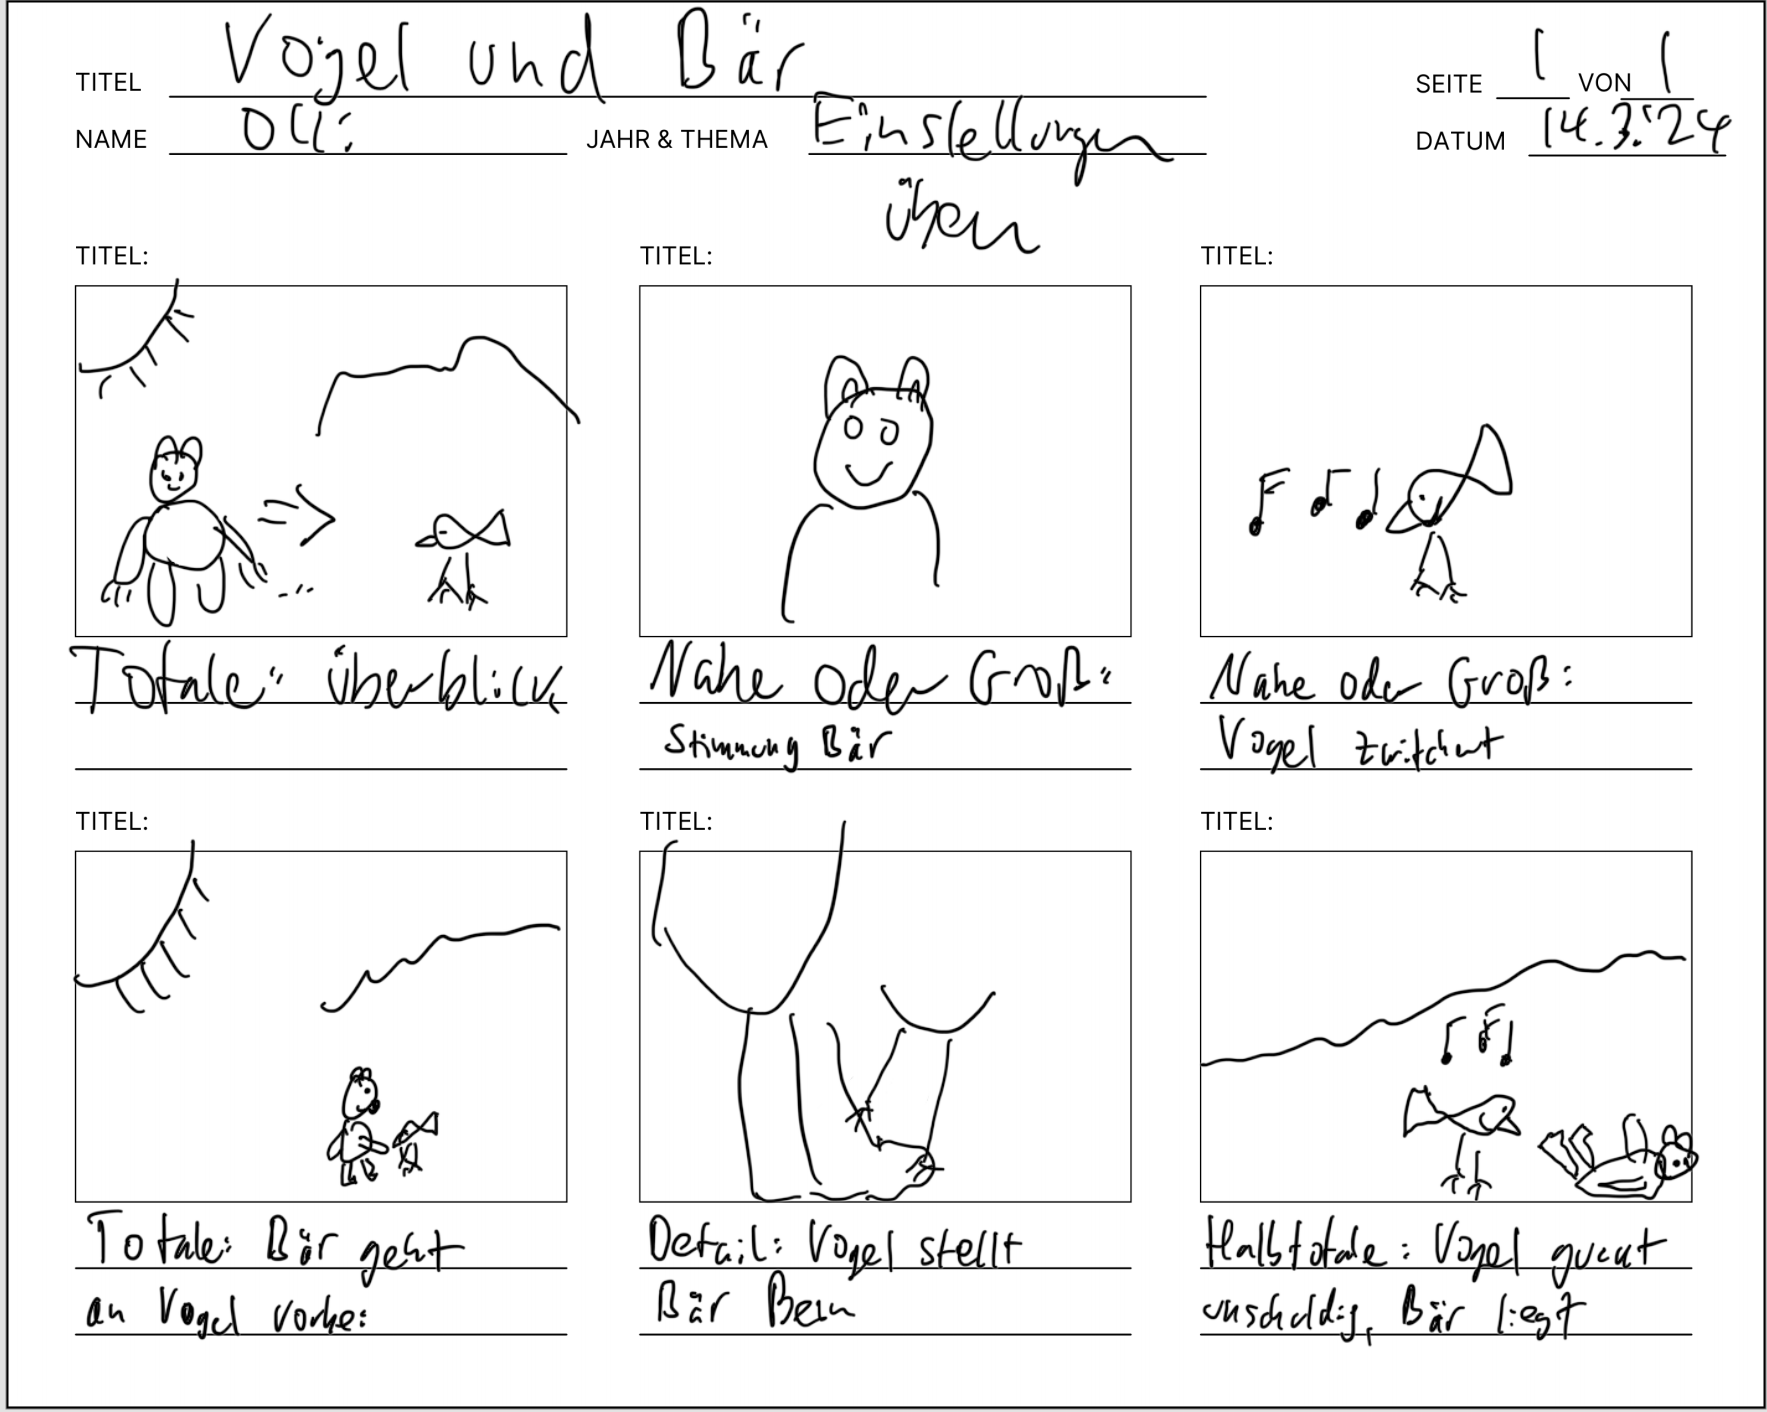 TITEL Vogel und Bär SEITE 1 VON 1
NAME Olli JAHR & THEMA Einstellungen DATUM 14.3.'24
üben
TITEL: TITEL: TITEL:
Totale: Überblick
Nahe oder Groß:
Stimmung Bär
Nahe oder Groß:
Vogel zwitschert
TITEL: TITEL: TITEL:
Totale: Bär geht
an Vogel vorbei
Detail: Vogel stellt
Bär Bein
Halbtotale: Vogel guckt
unschuldig, Bär liegt